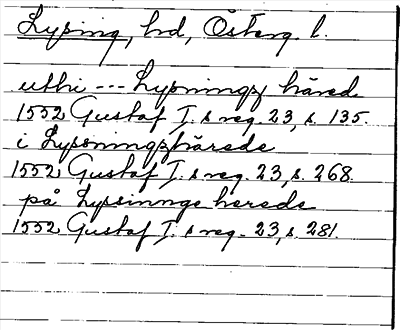 Lysing, hd, Österg. l.
uthi --- Lyszningz häred
1552 Gustaf I. s reg. 23, s. 135.
i Lyssningzhärede
1552 Gustaf I. s reg. 23, s. 268.
på Lyssinnge herede
1552 Gustaf I. s reg. 23, s. 281.